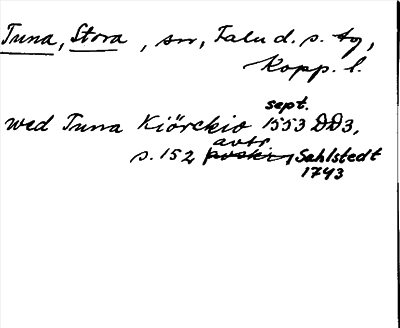 Tuna, Stora, sn, Falu d. s. tg,
Kopp. l.
sept.
wed Tuna Kiörckio 1553 DD3,
avtr.
s. 152 Sahlstedt
1743